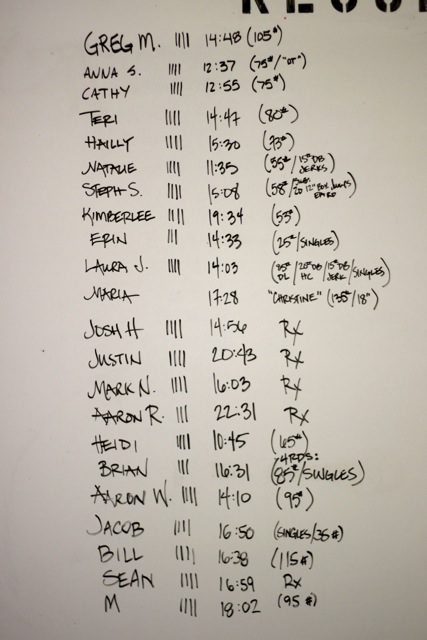 GREG M. |||| 14:48 (105#)
ANNA S. |||| 12:37 (75#/"OT")
CATHY |||| 12:55 (75#)
TERI |||| 14:47 (80#)
HAILLY |||| 15:30 (73#)
NATALIE |||| 11:35 (55#/15# DB JERKS)
STEPH S. |||| 15:08 (58#/ 20 12" BOX JUMPS
KIMBERLEE |||| 19:34 (55#)
ERIN ||| 14:33 (25#/SINGLES)
LAURA J. |||| 14:03 (85# DL/20# DB HC/15# DB JERK/SINGLES)
MARIA 17:28 "CHRISTINE" (135#/18")
JOSH H |||| 14:56 RX
JUSTIN |||| 20:43 RX
MARK N. |||| 16:03 RX
AARON R. ||| 22:31 RX
HEIDI |||| 10:45 (65#)
BRIAN ||| 16:31 4RDS: (85#/SINGLES)
AARON W. |||| 14:10 (95#)
JACOB |||| 16:50 (SINGLES/35#)
BILL |||| 16:38 (115#)
SEAN |||| 16:59 RX
M |||| 18:02 (95#)